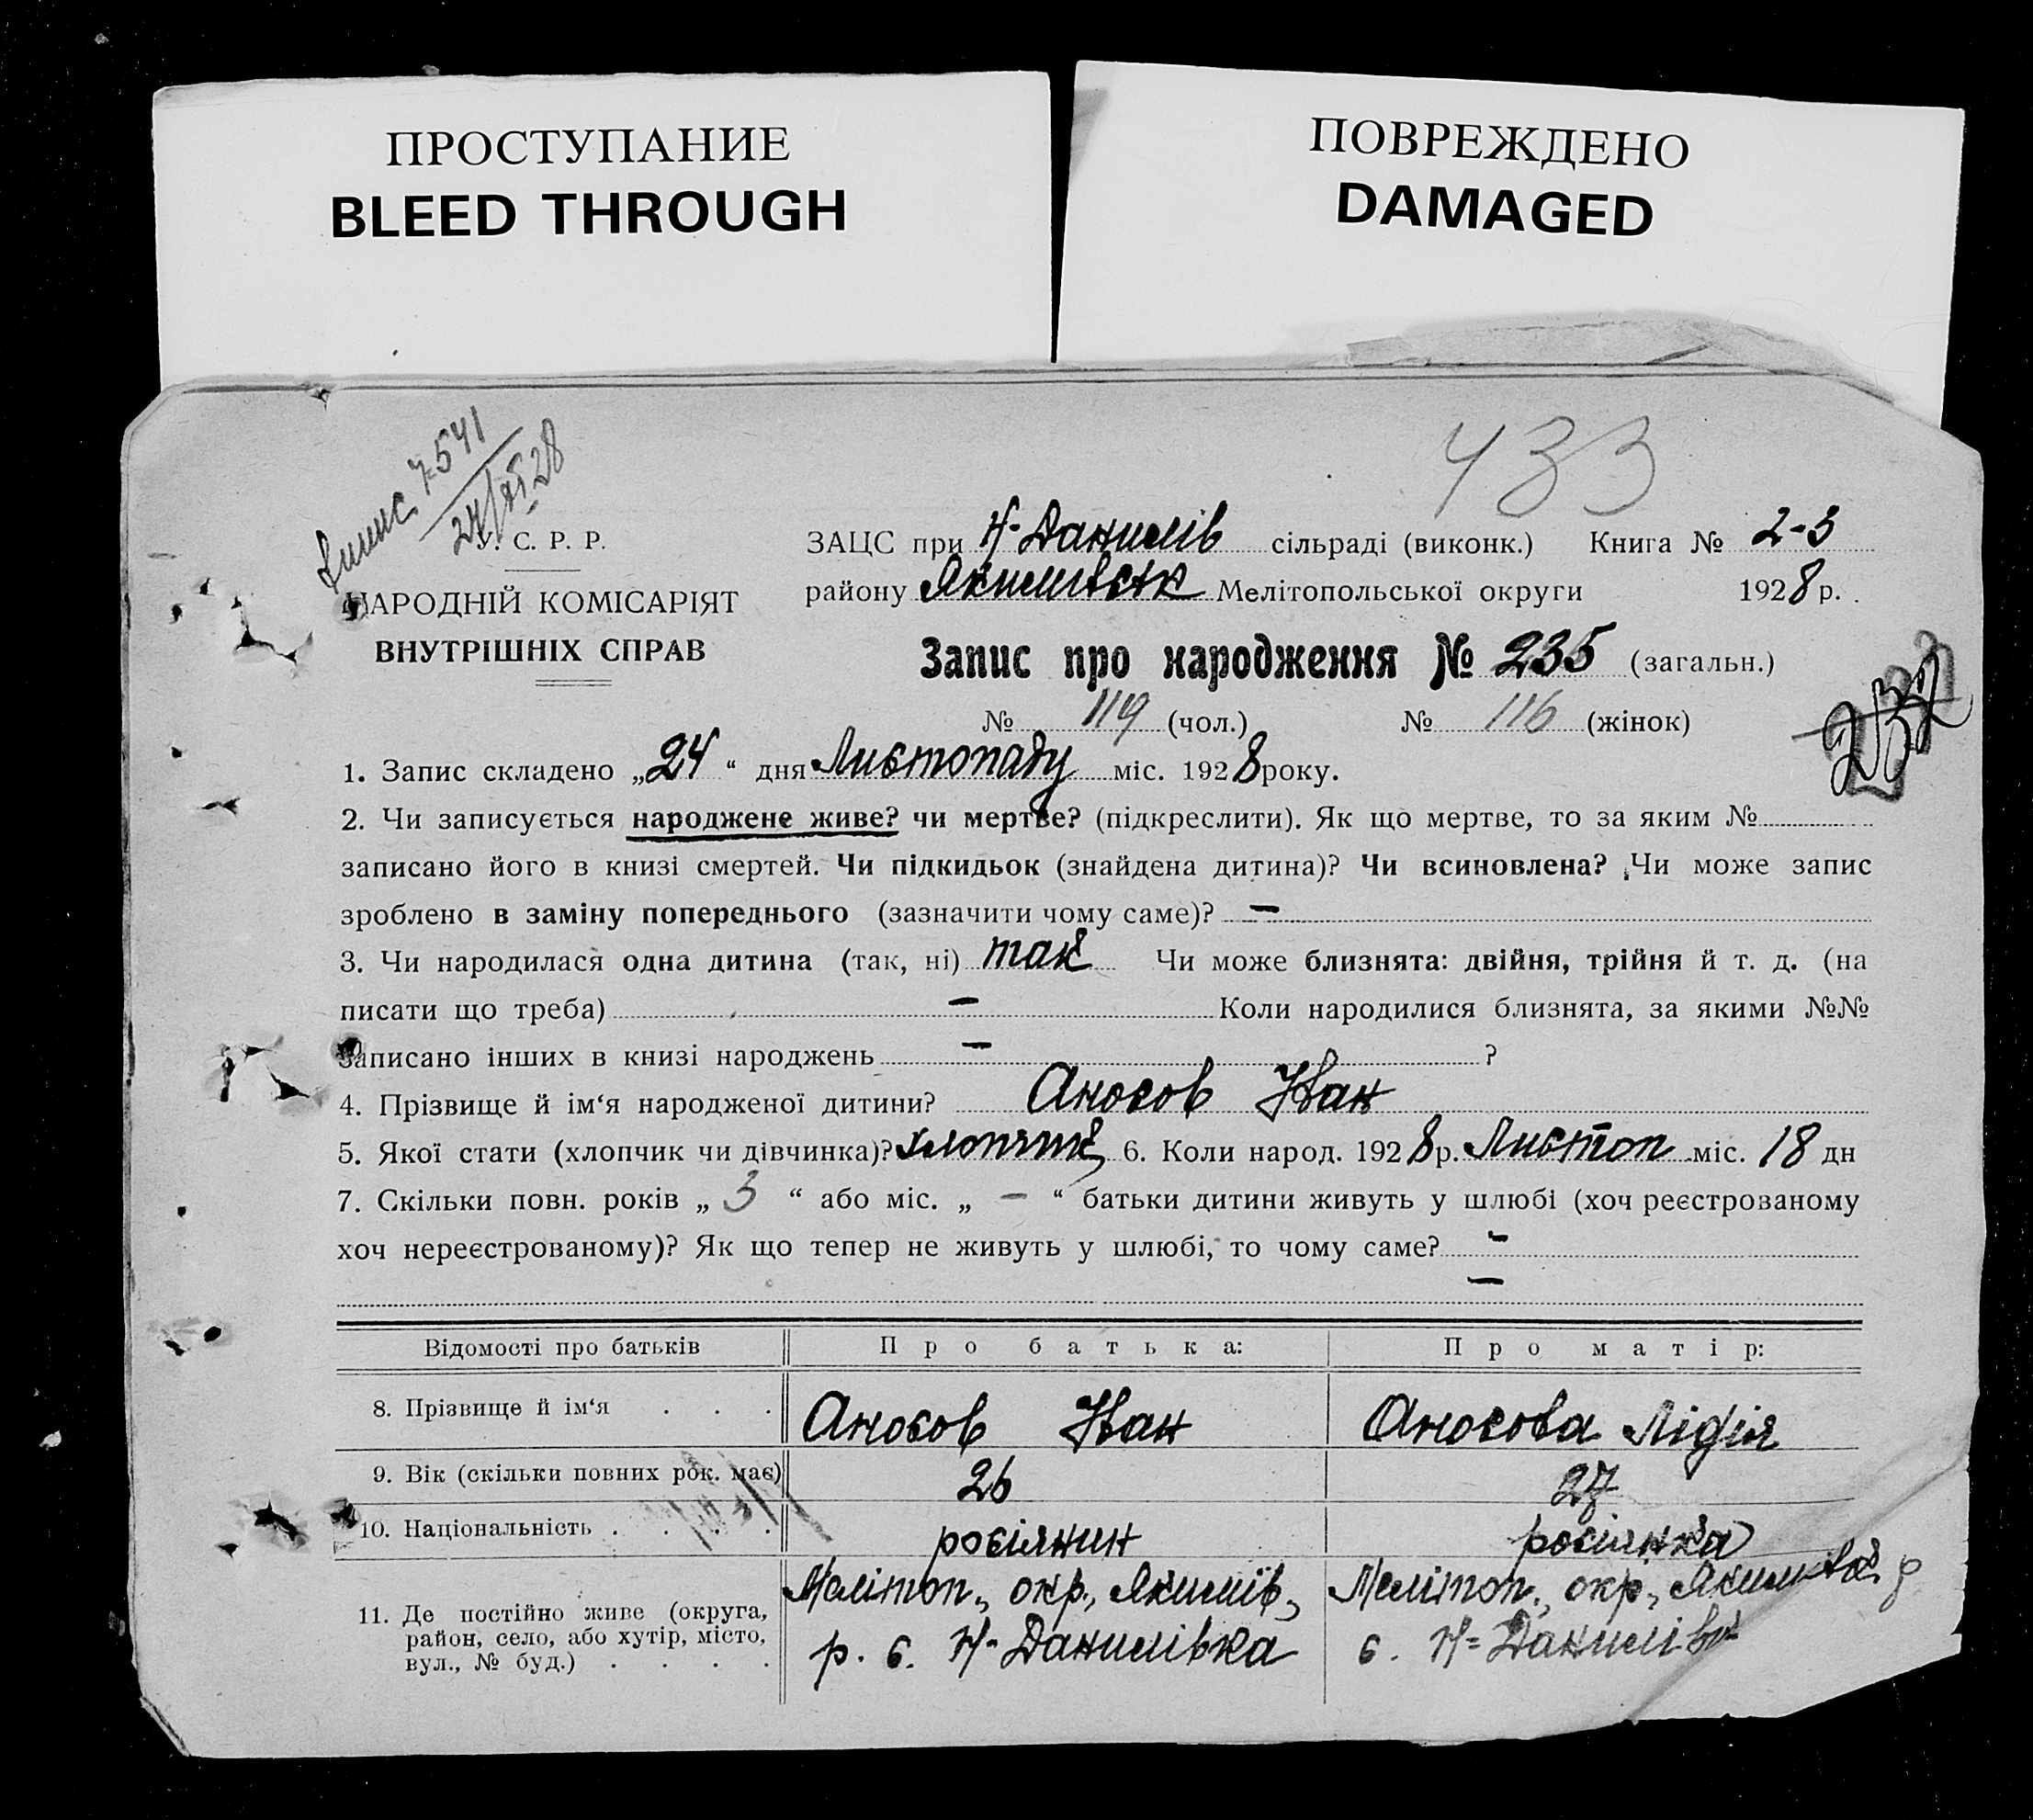 ПРОСТУПАНИЕ
BLEED THROUGH
ПОВРЕЖДЕНО
DAMAGED
7541
24/XI 28
433
У. С. Р. Р.
НАРОДНІЙ КОМІСАРІЯТ
ВНУТРІШНІХ СПРАВ
ЗАЦС при Н-Данилів сільраді (виконк.) Книга № 2-3
району Якимівськ Мелітопольської округи 1928 р.
Запис про народження № 235 (загальн.)
232
№ 119 (чол.) № 116 (жінок)
1. Запис складено „24“ дня Листопаду міс. 1928 року.
2. Чи записується народжене живе? чи мертве? (підкреслити). Як що мертве, то за яким №
записано його в книзі смертей. Чи підкидьок (знайдена дитина)? Чи всиновлена? Чи може запис
зроблено в заміну попереднього (зазначити чому саме)? –
3. Чи народилася одна дитина (так, ні) так Чи може близнята: двійня, трійня й т. д. (на
писати що треба) – Коли народилися близнята, за якими №№
записано інших в книзі народжень – ?
4. Прізвище й ім‘я народженої дитини? Аносов Іван
5. Якої стати (хлопчик чи дівчинка)? хлопяче 6. Коли народ. 1928 р. Листоп міс. 18 дн
7. Скільки повн. років „ 3 “ або міс. „ – “ батьки дитини живуть у шлюбі (хоч реєстрованому
хоч нереєстрованому)? Як що тепер не живуть у шлюбі, то чому саме? –
–
Відомості про батьків Про батька: Про матір:
8. Прізвище й ім‘я . . . Аносов Іван Аносова Лідія
9. Вік (скільки повних рок. має) 26 27
10. Національність . . . . росіянин росіянка
11. Де постійно живе (округа, район, село, або хутір, місто, вул., № буд.) . . . .
Меліт​оп., окр., Якимів,
р. с. Н-Данилівка
Мелітоп., окр., Якимівськ р
с. Н-Данилівк